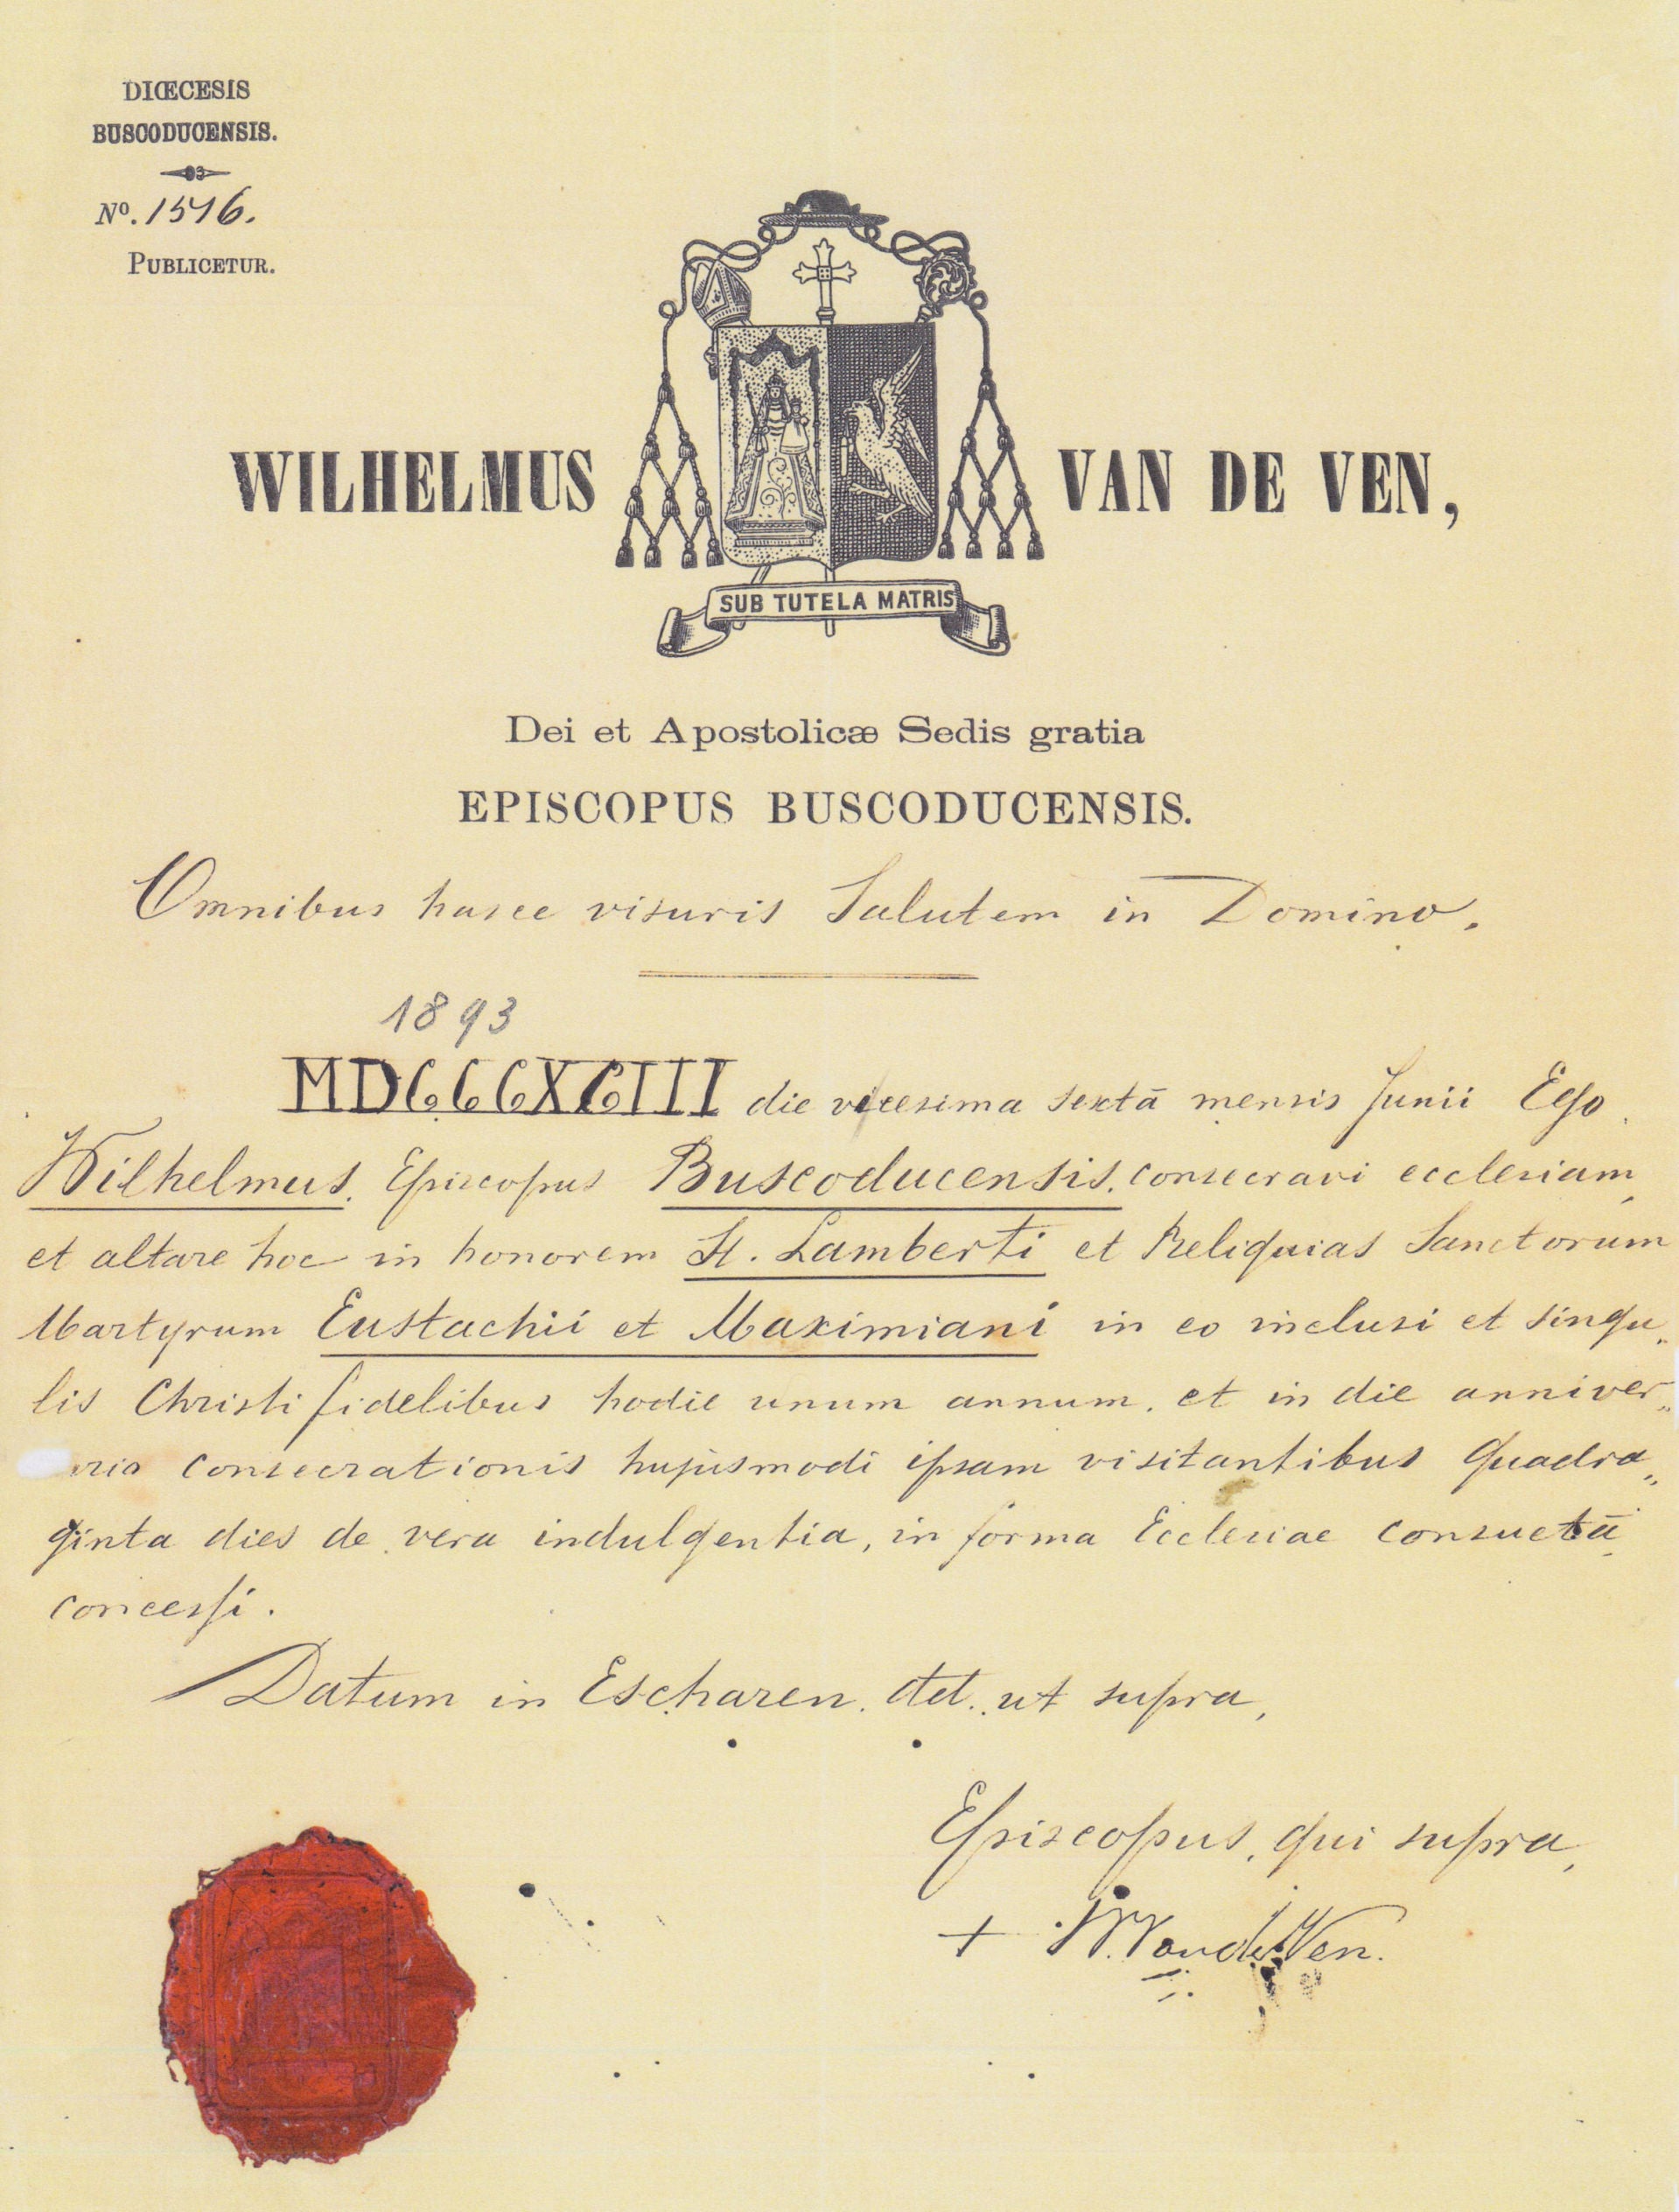 DIŒCESIS
BUSCODUCENSIS.
Nº. 1516.
PUBLICETUR.
WILHELMUS VAN DE VEN,
SUB TUTELA MATRIS
Dei et Apostolicæ Sedis gratia
EPISCOPUS BUSCODUCENSIS.
Omnibus hasce visuris Salutem in Domino.
1893
MDCCCXCIII die vicesima sextā mensis Junii Ego
Wilhelmus. Episcopus Buscoducensis. consecravi ecclesiam
et altare hoc in honorem St. Lamberti et Reliquias Sanctorum
Martyrum Eustachii et Maximiani in eo inclusi et singu„
lis Christi fidelibus hodie unum annum. et in die anniver„
rio consecrationis hujusmodi ipsam visitantibus quadra„
ginta dies de vera indulgentia, in forma Ecclesiae consuetā
concessi.
Datum in Escharen. ut supra,
Episcopus, qui supra,
+ W. Van de Ven.